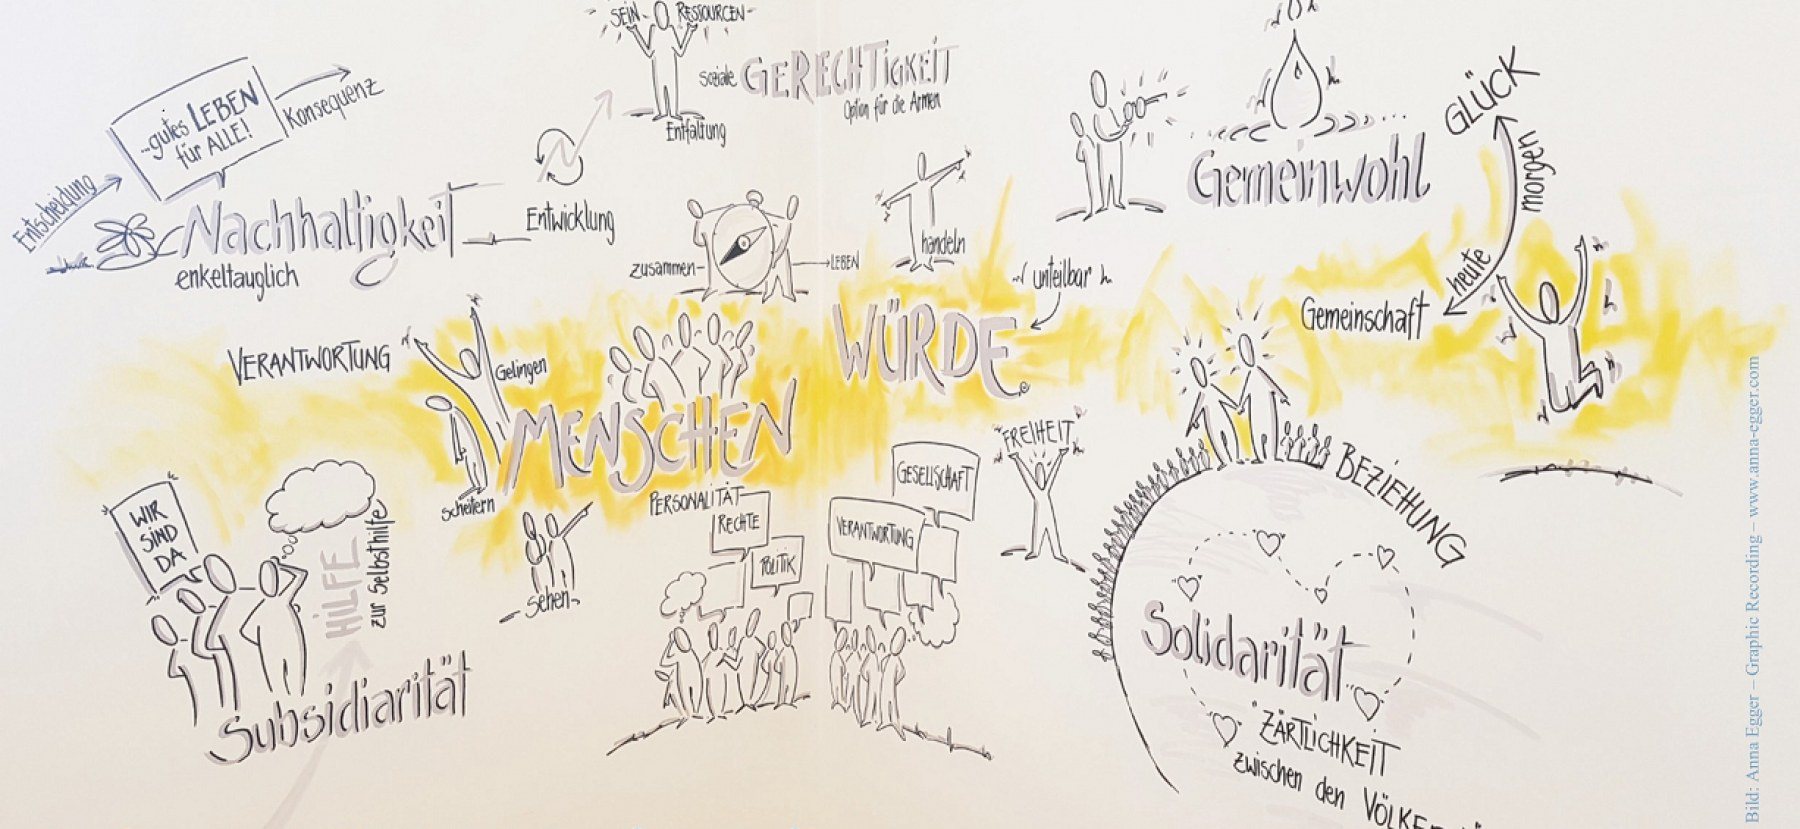 SEIN
RESSOURCEN
Entfaltung
soziale GERECHTIGKEIT
Option für die Armen
Entscheidung
...gutes LEBEN
für ALLE!
Konsequenz
Nachhaltigkeit
enkeltauglich
Entwicklung
zusammen-
LEBEN
handeln
Gemeinwohl
GLÜCK
morgen
heute
Gemeinschaft
unteilbar
WÜRDE
VERANTWORTUNG
Gelingen
scheitern
MENSCHEN
sehen
PERSONALITÄT
RECHTE
POLITIK
GESELLSCHAFT
VERANTWORTUNG
FREIHEIT
WIR
SIND
DA
HILFE
zur Selbsthilfe
Subsidiarität
BEZIEHUNG
Solidarität
"ZÄRTLICHKEIT
zwischen den
Bild: Anna Egger – Graphic Recording – www.anna-egger.com